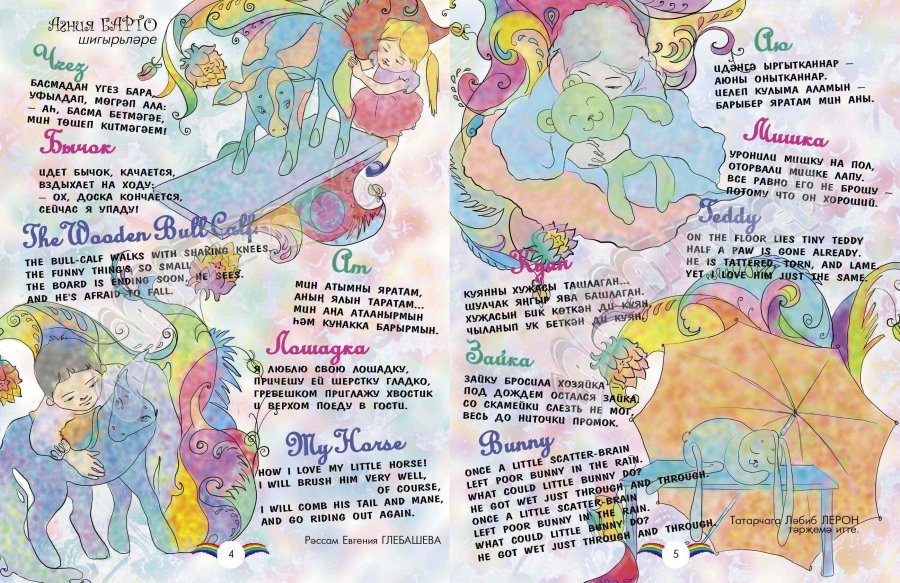 Агния БАРТО
шигырьләре
Үгез
БАСМАДАН ҮГЕЗ БАРА,
УФЫЛДАП, МӨГРӘП АЛА:
– АҺ, БАСМА БЕТМӘГӘЕ,
МИН ТӨШЕП КИТМӘГӘЕМ!
Бычок
ИДЕТ БЫЧОК, КАЧАЕТСЯ,
ВЗДЫХАЕТ НА ХОДУ:
– ОХ, ДОСКА КОНЧАЕТСЯ,
СЕЙЧАС Я УПАДУ!
The Wooden Bull Calf
THE BULL-CALF WALKS WITH SHAKING KNEES.
THE FUNNY THING'S SO SMALL,
THE BOARD IS ENDING SOON, HE SEES.
AND HE'S AFRAID TO FALL.
Ат
МИН АТЫМНЫ ЯРАТАМ,
АНЫҢ ЯЛЫН ТАРАТАМ...
МИН АҢА АТЛАНЫРМЫН
ҺӘМ КУНАККА БАРЫРМЫН.
Лошадка
Я ЛЮБЛЮ СВОЮ ЛОШАДКУ,
ПРИЧЕШУ ЕЙ ШЕРСТКУ ГЛАДКО,
ГРЕБЕШКОМ ПРИГЛАЖУ ХВОСТИК
И ВЕРХОМ ПОЕДУ В ГОСТИ.
My Horse
HOW I LOVE MY LITTLE HORSE!
I WILL BRUSH HIM VERY WELL,
OF COURSE,
I WILL COMB HIS TAIL AND MANE,
AND GO RIDING OUT AGAIN.
Рәссам Евгения ГЛЕБАШЕВА
4
Аю
ИДӘНГӘ ЫРГЫТКАННАР –
АЮНЫ ОНЫТКАННАР.
ИЕЛЕП КУЛЫМА АЛАМЫН –
БАРЫБЕР ЯРАТАМ МИН АНЫ.
Мишка
УРОНИЛИ МИШКУ НА ПОЛ,
ОТОРВАЛИ МИШКЕ ЛАПУ.
ВСЕ РАВНО ЕГО НЕ БРОШУ –
ПОТОМУ ЧТО ОН ХОРОШИЙ.
Teddy
ON THE FLOOR LIES TINY TEDDY
HALF A PAW IS GONE ALREADY.
HE IS TATTERED, TORN, AND LAME
YET I LOVE HIM JUST THE SAME.
Куян
КУЯННЫ ХУЖАСЫ ТАШЛАГАН...
ШУЛЧАК ЯҢГЫР ЯВА БАШЛАГАН.
ХУЖАСЫН БИК КӨТКӘН ДИ КУЯН,
ЧЫЛАНЫП УК БЕТКӘН ДИ КУЯН.
Зайка
ЗАЙКУ БРОСИЛА ХОЗЯЙКА
ПОД ДОЖДЕМ ОСТАЛСЯ ЗАЙКА,
СО СКАМЕЙКИ СЛЕЗТЬ НЕ МОГ,
ВЕСЬ ДО НИТОЧКИ ПРОМОК.
Bunny
ONCE A LITTLE SCATTER-BRAIN
LEFT POOR BUNNY IN THE RAIN.
WHAT COULD LITTLE BUNNY DO?
HE GOT WET JUST THROUGH AND THROUGH.
ONCE A LITTLE SCATTER-BRAIN
LEFT POOR BUNNY IN THE RAIN.
WHAT COULD LITTLE BUNNY DO?
HE GOT WET JUST THROUGH AND THROUGH.
Татарчага Ләбиб ЛЕРОН
тәрҗемә итте.
5